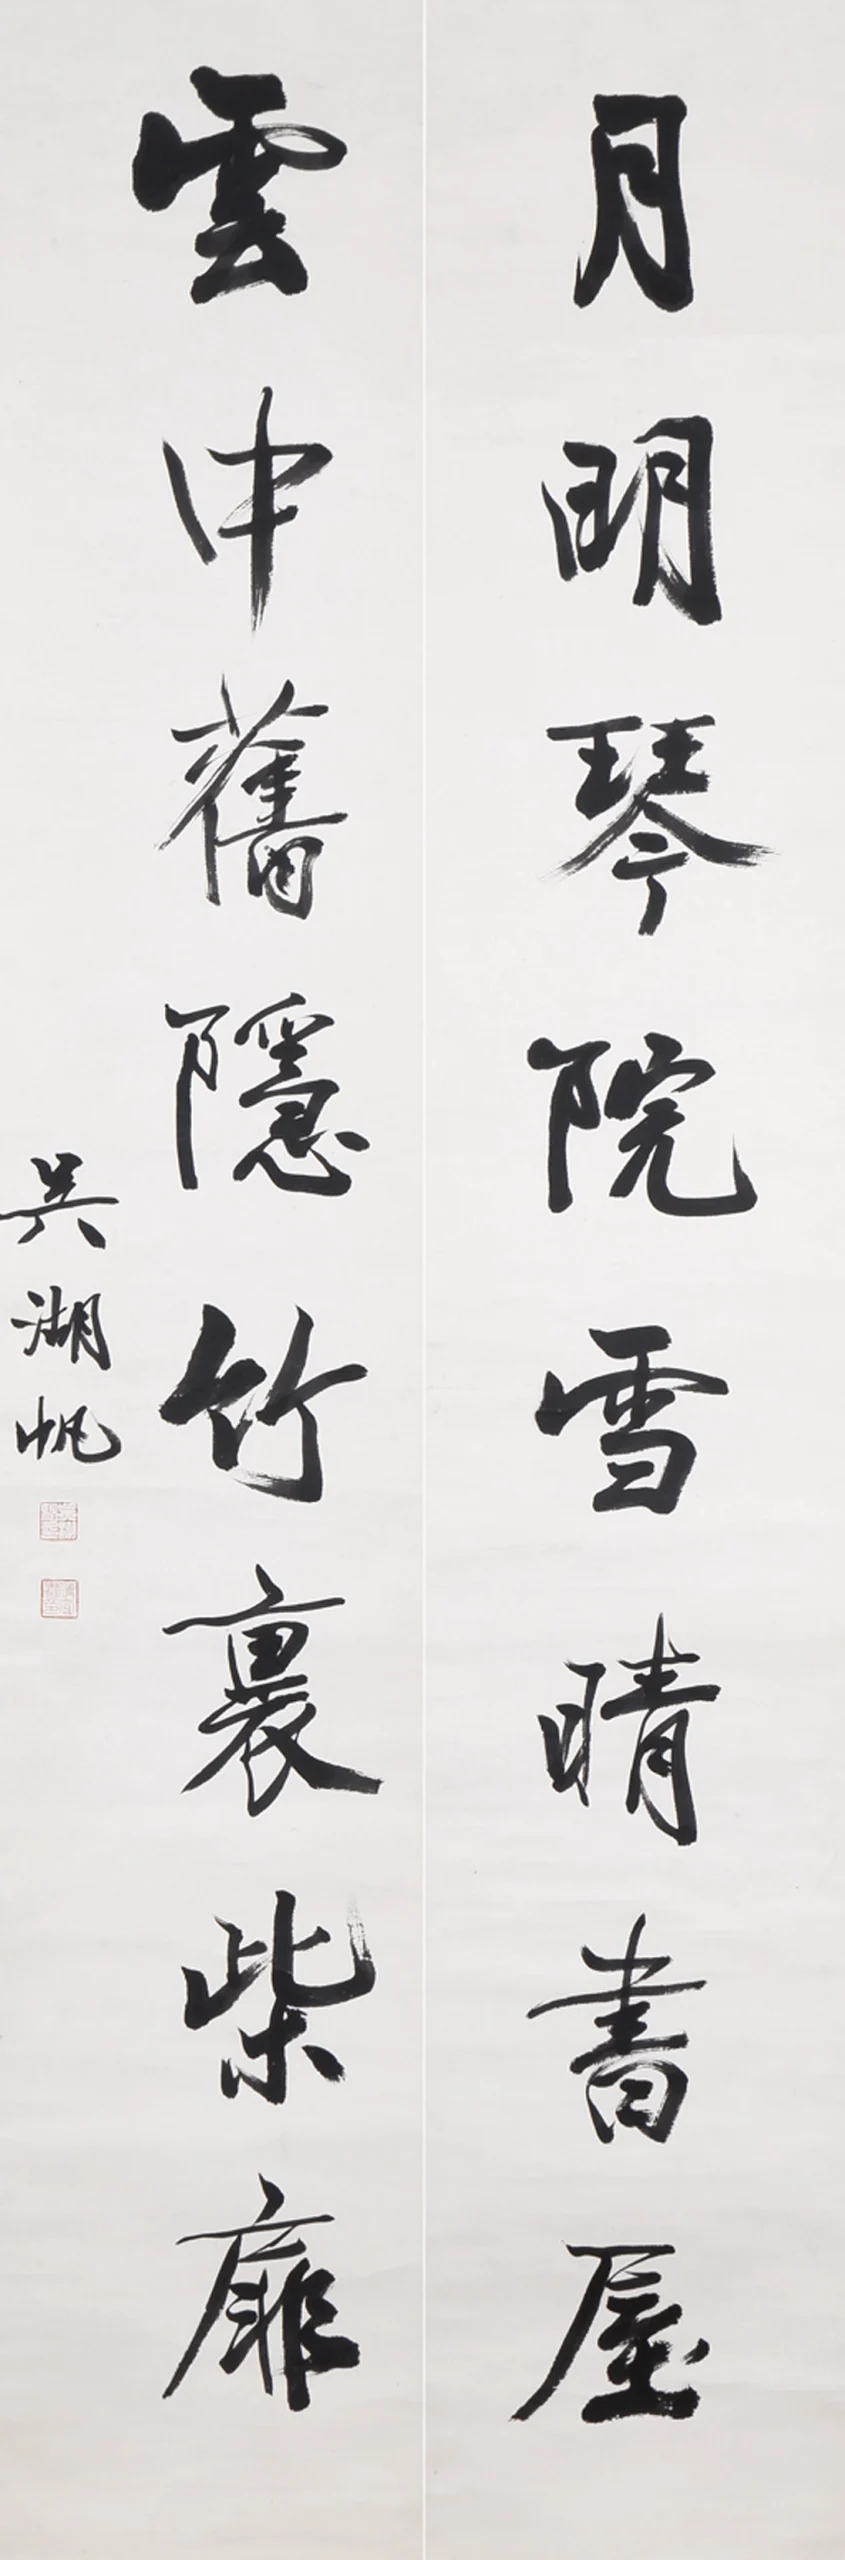 月明琴院雪晴書屋
雲中舊隱竹裏柴扉
吳湖帆